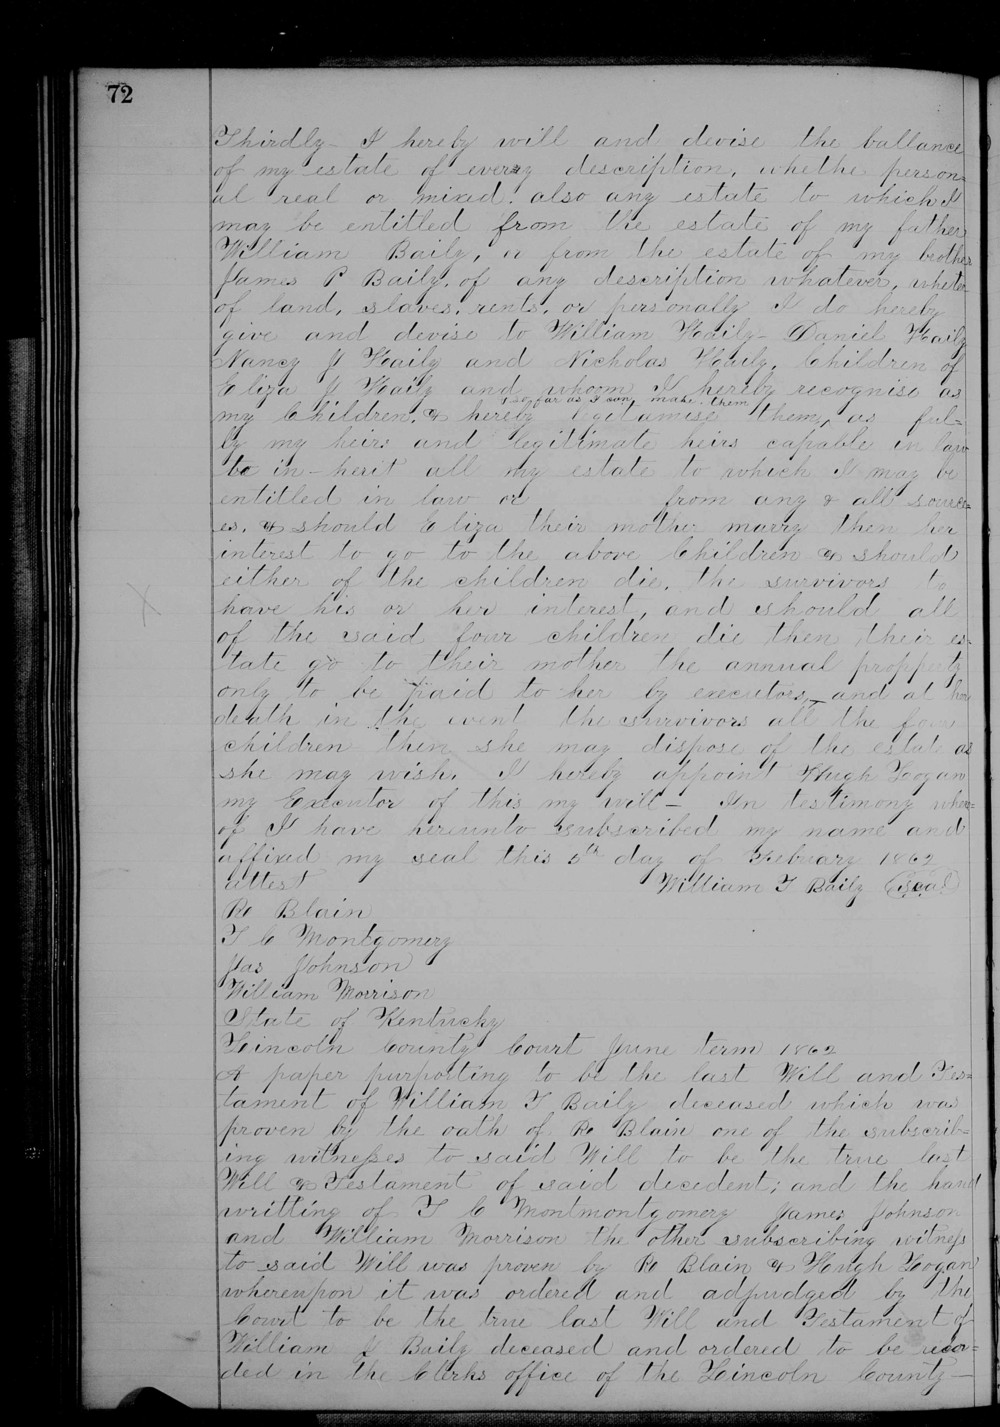 72
Thirdly - I hereby will and devise the ballance
of my estate of every description, whethe person=
al real or mixed. also any estate to which I
may be entitled from the estate of my father
William Baily, or from the estate of my brother
James P Baily. of any description whatever, whether
of land, slaves, rents, or personally I do hereby
give and devise to William Haily - Daniel Haily
Nancy J Haily and Nicholas Haily, Children of
Eliza J Haily and whoom I hereby recognise as
so far as I can make them
my Children. & hereby legitamise them, as ful-
ly my heirs and legitimate heirs capable in law
to in-herit all my estate to which I may be
entitled in law or from any & all sourc=
es. & should Eliza their mother marry then her
interest to go to the above Children & should
either of the children die, the survivors to
have his or her interest, and should all
of the said four children die then their es-
tate go to their mother the annual propperty
only to be paid to her by executors, and at her
death in the event the survivors all the four
children then she may dispose of the estat as
she may wish. I hereby appoint Hugh Logan
my Executor of this my will - In testimony where=
of I have hereunto subscribed my name and
affixed my seal this 5th day of February 1862
attest William T Baily (seal)
Ro Blain
T C Montgomery
Jas Johnson
William Morrison
State of Kentucky
Lincoln County Court June term 1862
A paper purporting to be the last Will and Tes=
tament of William T Baily deceased which was
proven by the oath of Ro Blain one of the subscrib=
ing witnesses to said Will to be the true last
Will & Testament of said decedent; and the hand
writting of T C Montmontgomery James Johnson
and William Morrison the other subscribing witness
to said Will was proven by Ro Blain & Hugh Logan
whereupon it was ordered and adpudged by the
Court to be the true last Will and Testament of
William J Baily deceased and ordered to be recor=
ded in the Clerks office of the Lincoln County -